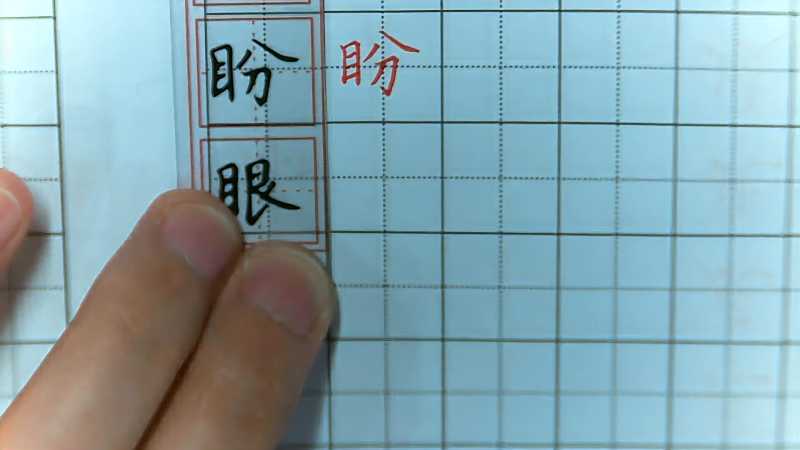 盼 盼
眼